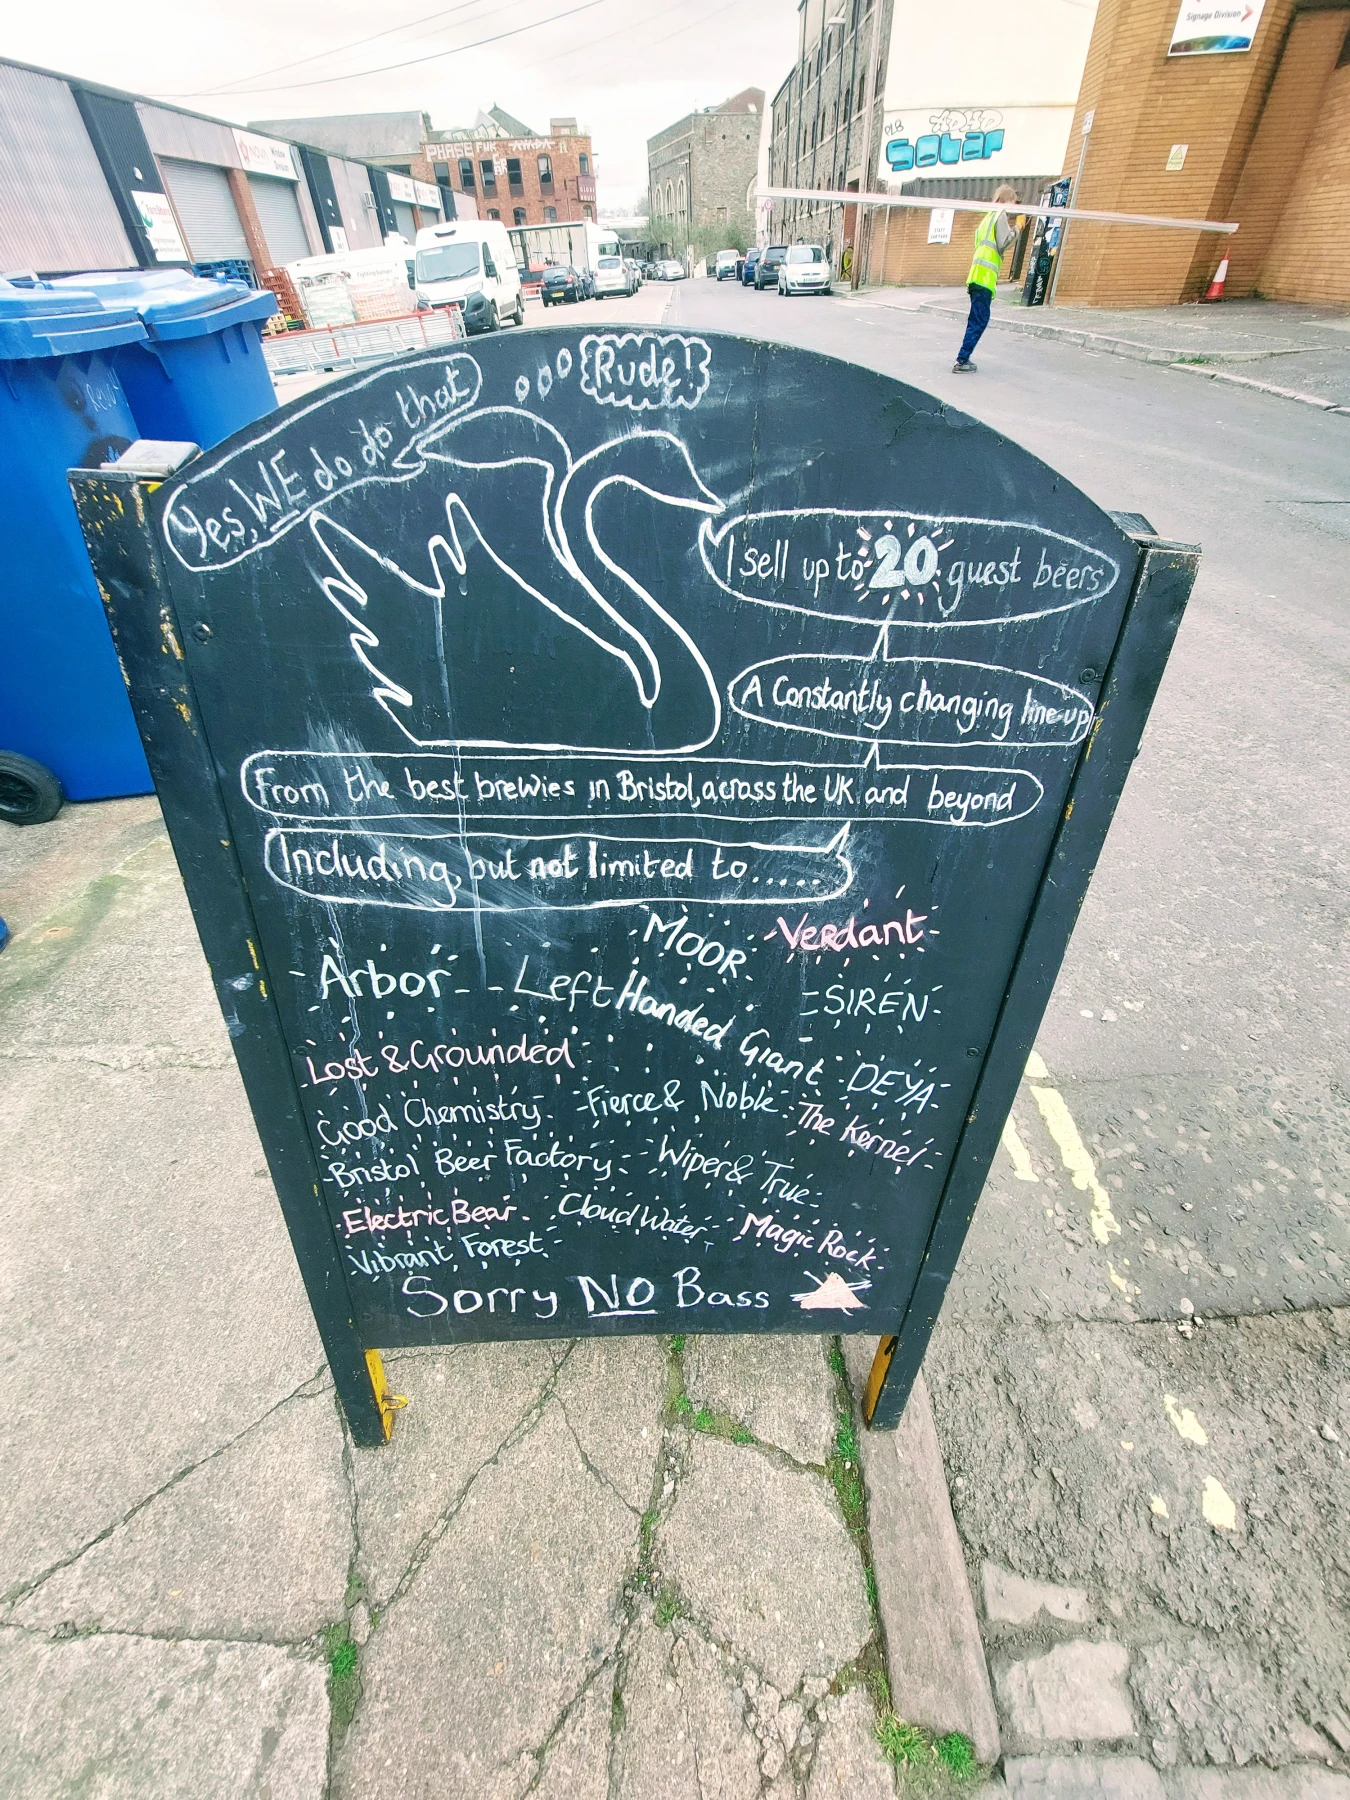 Signage Division
PHASE
NOVA
Window
Division
PLB
Sotar
Rude!
Yes, WE do do that
I sell up to 20 guest beers
A Constantly changing line-up
From the best brewies in Bristol, across the UK and beyond
Including, but not limited to.....
MOOR
Verdant
Arbor
Left Handed Giant
SIREN
Lost & Grounded
DEYA
Good Chemistry
Fierce & Noble
The Kernel
Bristol Beer Factory
Wiper & True
Electric Bear
Cloud Water
Magic Rock
Vibrant Forest
Sorry NO Bass